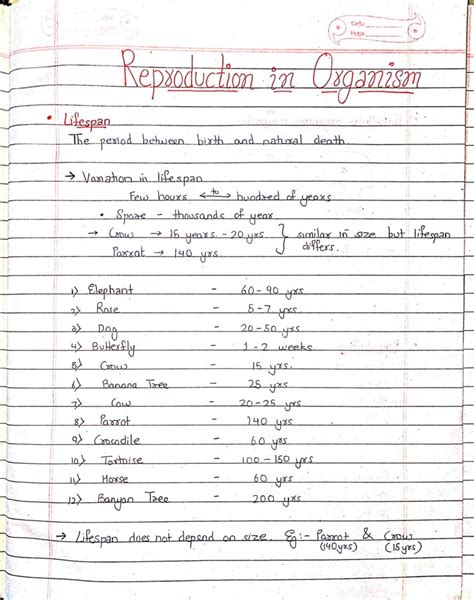 Date
Page
Reproduction in Organism
• Lifespan
The period between birth and natural death.
→ Variation in lifespan
Few hours <-to-> hundred of years
• Spare - thousands of year
→ Crow → 15 years. - 20 yrs } similar in size but lifespan differs.
Parrot → 140 yrs.
1) Elephant - 60-90 yrs.
2) Rose - 5-7 yrs.
3) Dog - 20-50 yrs.
4) Butterfly - 1-2 weeks
5) Crow - 15 yrs.
6) Banana Tree - 25 yrs
7) Cow - 20-25 yrs.
8) Parrot - 140 yrs
9) Crocodile - 60 yrs
10) Tortoise - 100-150 yrs
11) Horse - 60 yrs
12) Banyan Tree - 200 yrs
→ Lifespan does not depend on size. Eg:- Parrot & Crow
(140yrs) (15yrs)